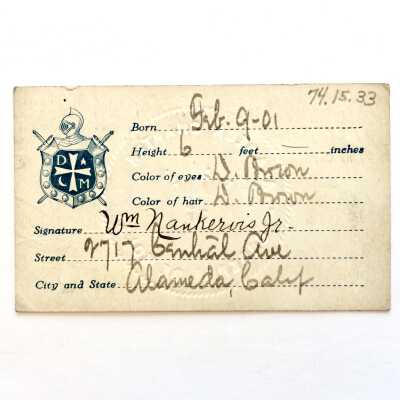 74.15.33
Born Feb. 9-01
Height 6 feet — inches
Color of eyes D. Brown
Color of hair D. Brown
D A
C M
Signature Wm Nankervis Jr.
Street 2717 Central Ave
City and State Alameda, Calif